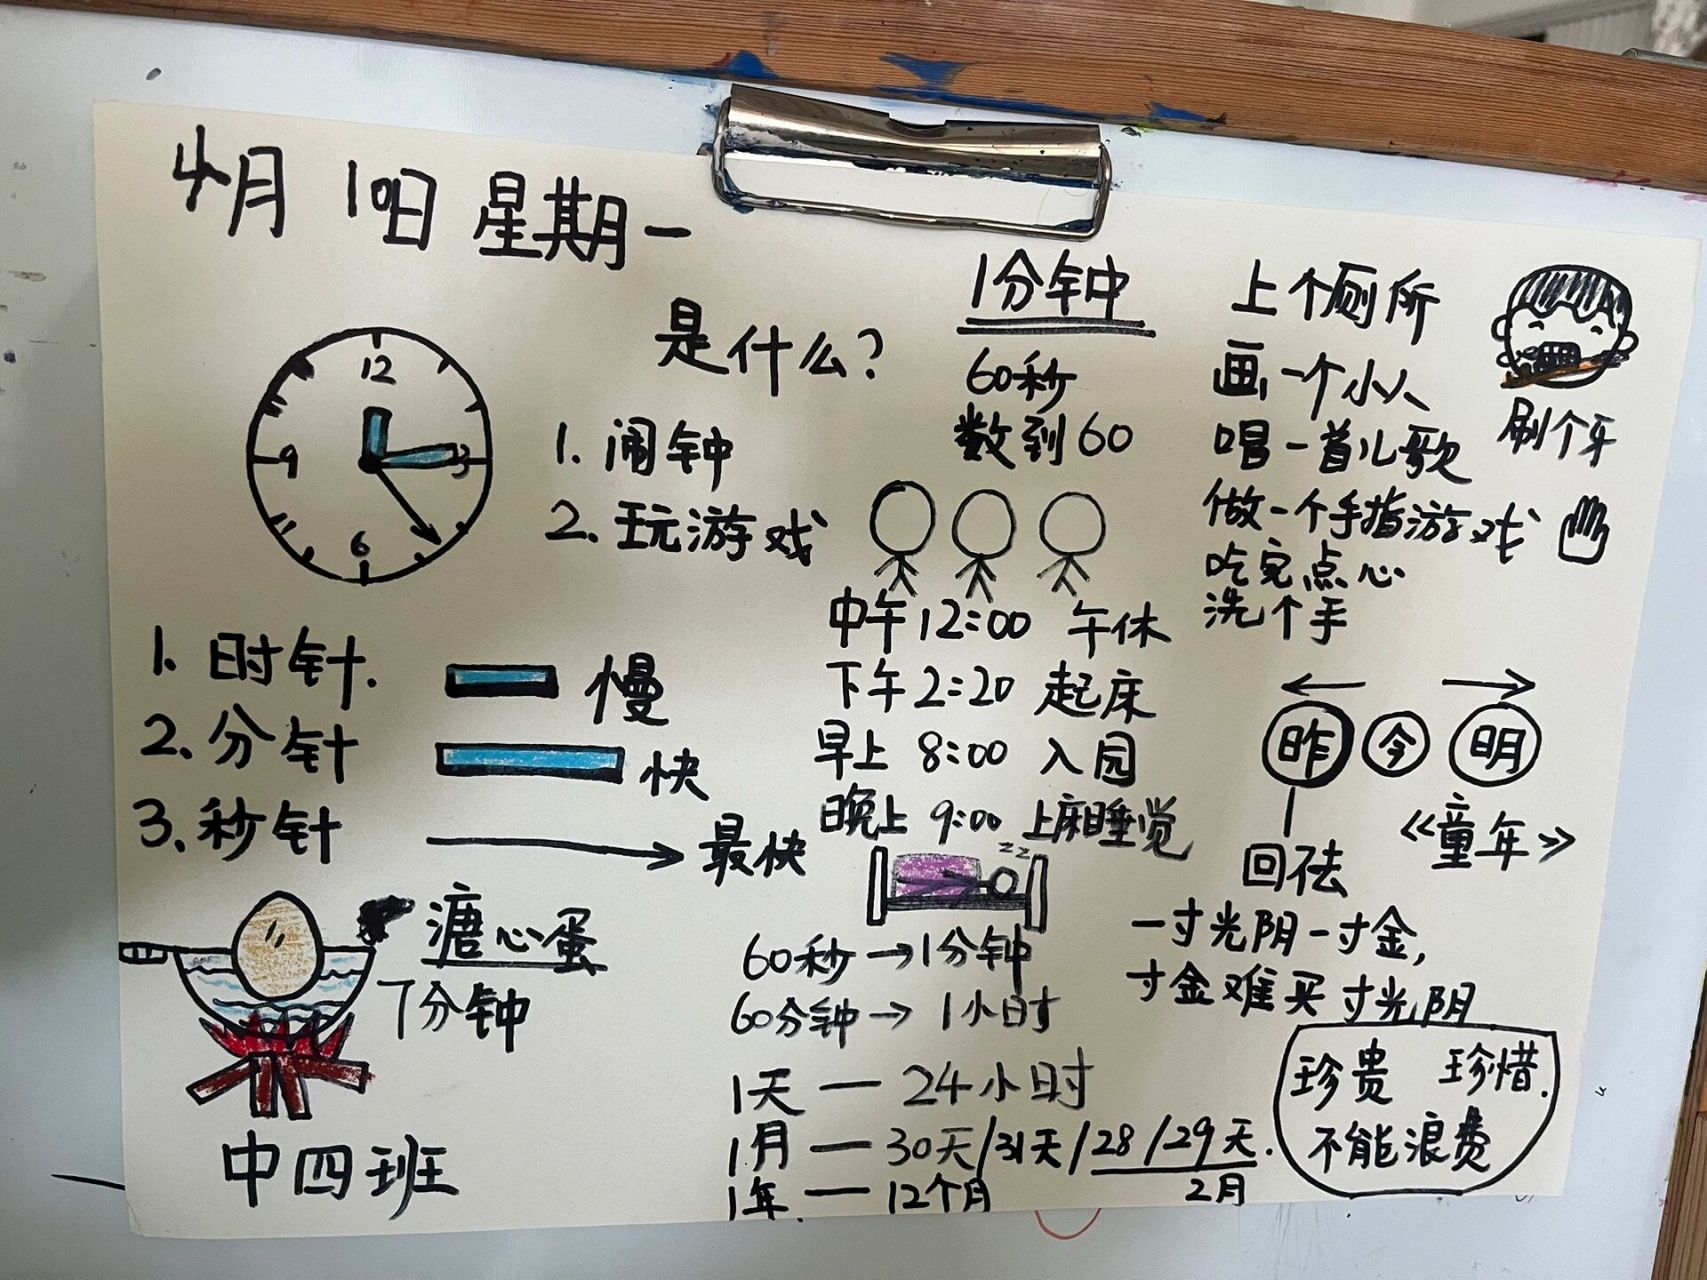 4月 10日 星期一
12
3
6
9
是什么？
1. 闹钟
2. 玩游戏
1. 时针. 慢
2. 分针 快
3. 秒针 最快
溏心蛋
7分钟
中四班
1分钟
60秒
数到60
中午12:00 午休
下午2:20 起床
早上 8:00 入园
晚上 9:00 上床睡觉
zz
60秒→1分钟
60分钟→1小时
1天 — 24小时
1月 — 30天/31天/28/29天.
2月
1年 — 12个月
上个厕所
画一个小人
唱一首儿歌
做一个手指游戏
吃完点心
洗个手
刷个牙
← →
昨 今 明
回去
《童年》
一寸光阴一寸金,
寸金难买寸光阴
珍贵 珍惜.
不能浪费